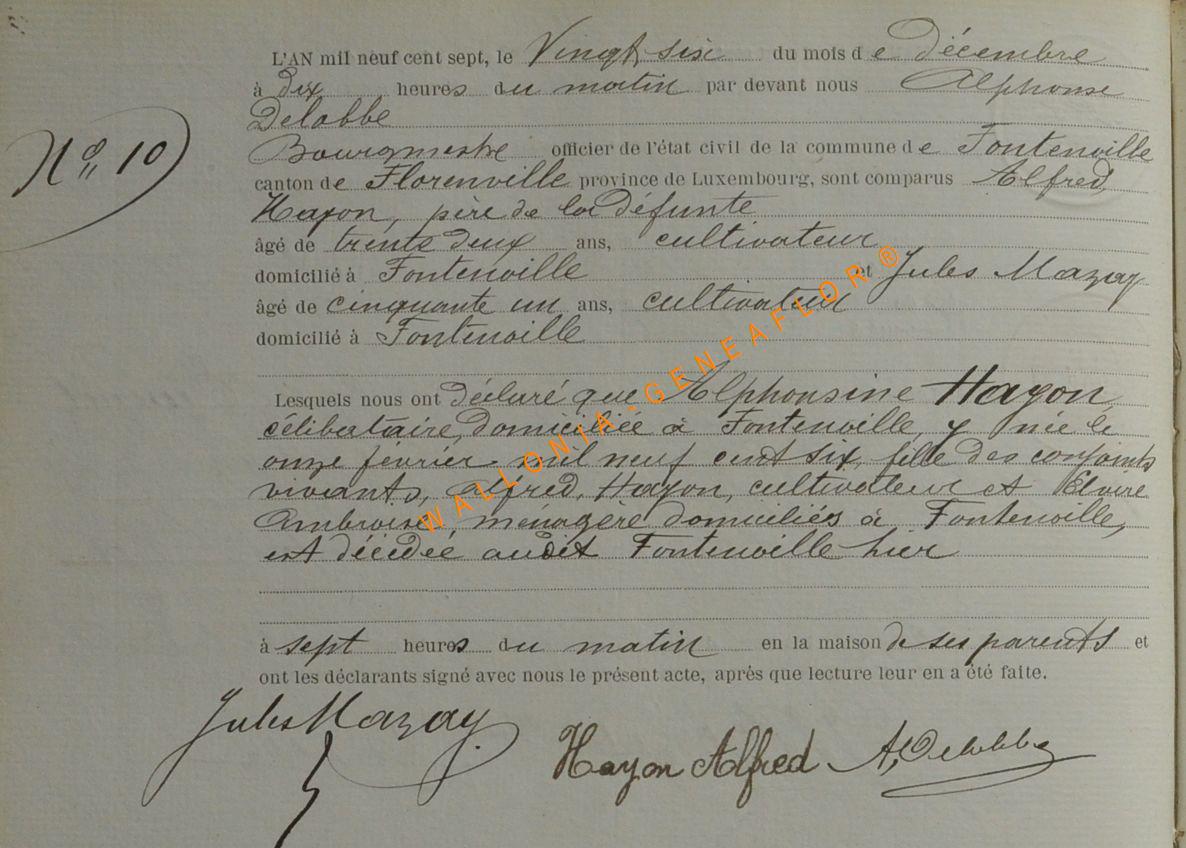 L'AN mil neuf cent sept, le Vingt six du mois de décembre
à dix heures du matin par devant nous Alphonse
Delobbe
Bourgmestre officier de l'état civil de la commune de Fontenoille
N° 10
canton de Florenville province de Luxembourg, sont comparus Alfred,
Hayon, père de la défunte
âgé de trente deux ans, cultivateur
domicilié à Fontenoille et Jules Mazay
âgé de cinquante un ans, cultivateur
domicilié à Fontenoille
Lesquels nous ont déclaré que Alphonsine Hayon,
célibataire, domiciliée à Fontenoille, y née le
onze février mil neuf cent six, fille des conjoints
vivants, Alfred, Hayon, cultivateur et Elvire
Ambroise ménagère domiciliés à Fontenoille,
est décédée audit Fontenoille hier
à sept heures du matin en la maison de ses parents et
ont les déclarants signé avec nous le présent acte, après que lecture leur en a été faite.
Jules Mazay
Hayon Alfred A, Delobbe
WALLONIA-GENEAFLOR®